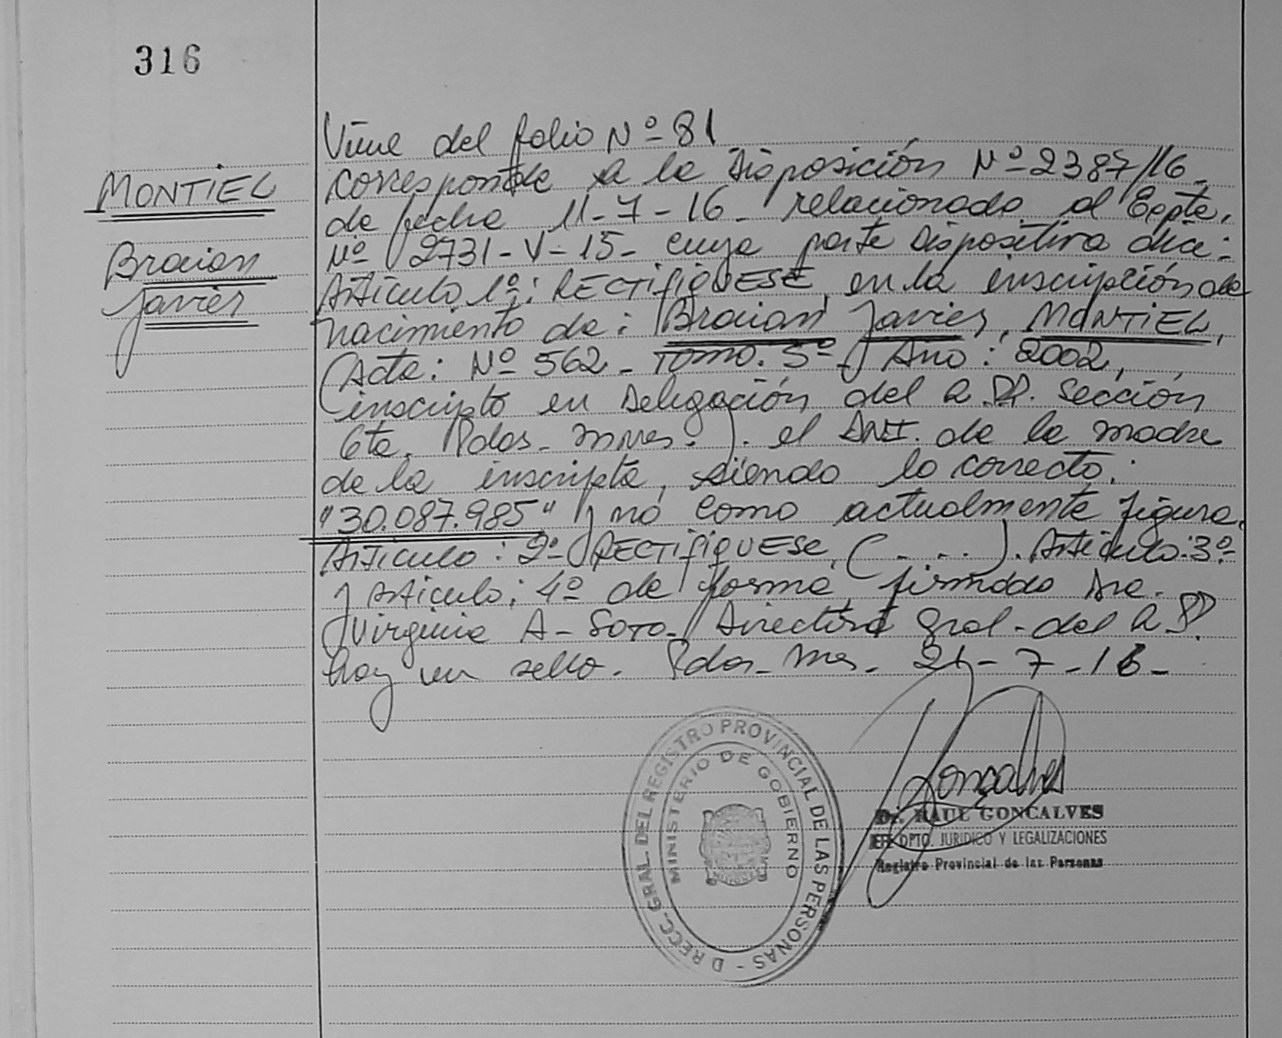 316
MONTIEL
Braian
Javier
Viene del folio Nº 81
corresponde a la Disposición Nº 2387/16-
de fecha 11-7-16- relacionado al Expte.
Nº 2731-V-15- cuya parte dispositiva dice:
Artículo 1º: RECTIFIQUESE, en la inscripción de
nacimiento de: Braian Javier, MONTIEL,
(Acta: Nº 562- Tomo. 3º, Año: 2002,
inscripto en Delegación del R.PP. Sección
6ta. Pdas- Mnes.). el DNI. de la madre
de la inscripta, siendo lo correcto:
"30.087.985" y no como actualmente figura.
Artículo: 2º RECTIFIQUESE, (....). Artículo: 3º
y Artículo: 4º de forma, firmado Dra.
Virginia A- Soto- Directora Gral- del R.P.
hay un sello. Pdas- Mnes- 21-7-16-
DIRECC. GRAL. DEL REGISTRO PROVINCIAL DE LAS PERSONAS -
MINISTERIO DE GOBIERNO
Goncalves
Dr. RAUL GONCALVES
DPTO. JURIDICO Y LEGALIZACIONES
Registro Provincial de las Personas